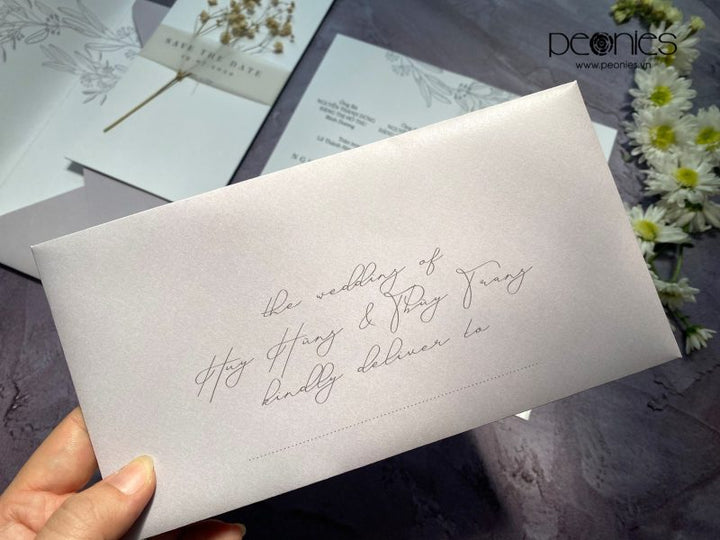 peonies
www.peonies.vn
SAVE THE DATE
Ông Bà
Bình Dương
the wedding of
Huy Hùng & Thùy Trang
kindly deliver to